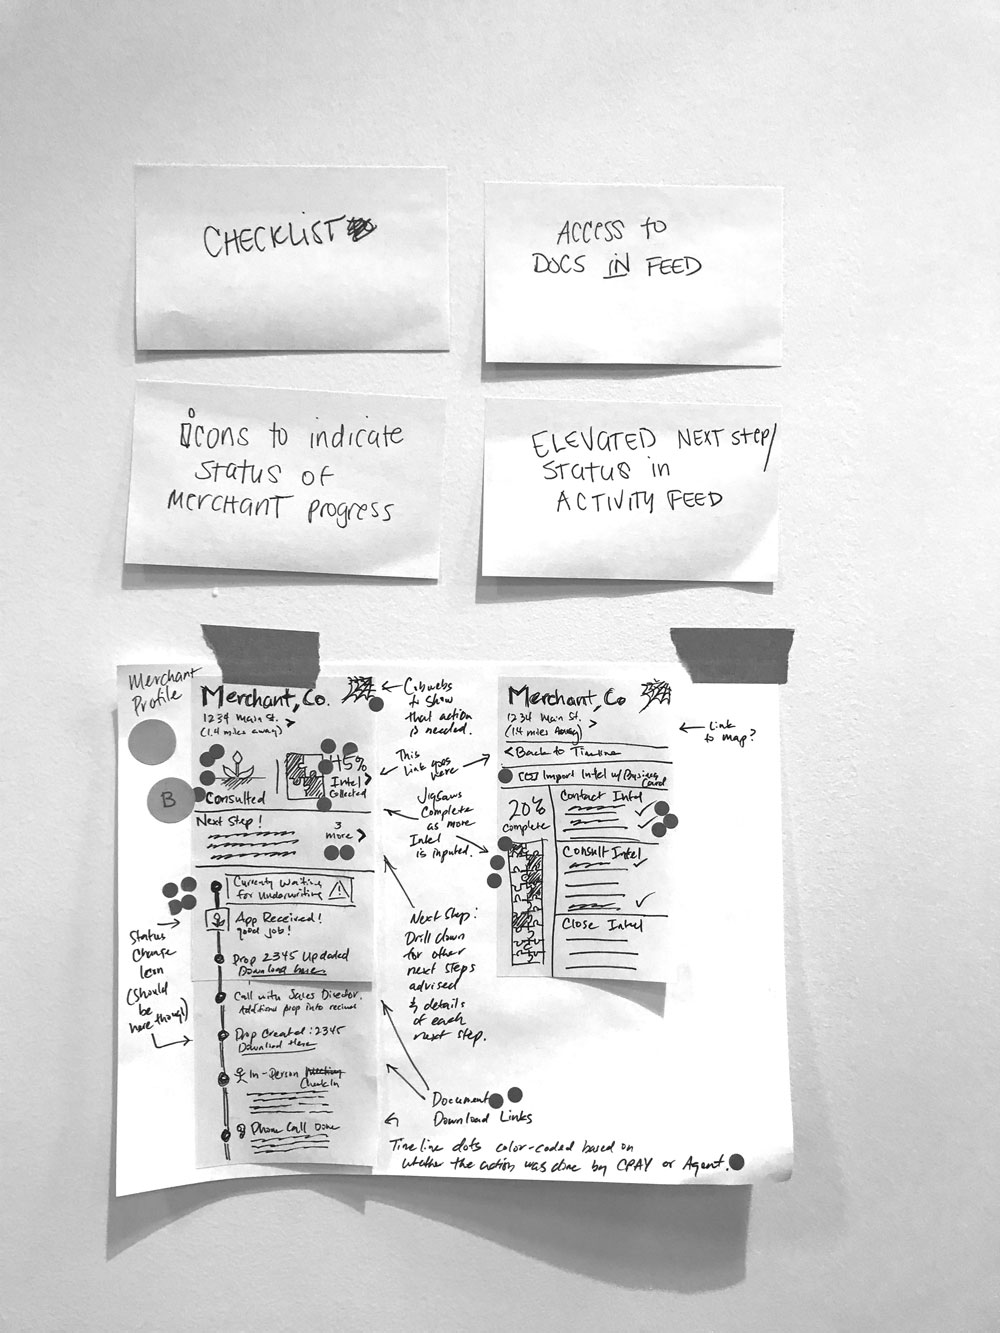 CHECKLIST
ACCESS to
DOCS IN FEED
icons to indicate
status of
MERCHANT progress
ELEVATED NEXT step/
STATUS in
ACTIVITY FEED
Merchant
Profile
B
Merchant, Co.
1234 Main St.
(1.4 miles away)
Consulted
45%
Intel
Collected
Next Step!
3
more
Currently Waiting
for Underwriting
App Received!
good job!
Prop 2345 Updated
Download here
Call with Sales Director.
Additional prop info
Prop Created: 2345
Download Here
In-Person
Check In
Phone Call Done
Status
Change
Icon
(Should
be
here though)
Cobwebs
to show
that action
is needed.
This
Link goes
here
Jigsaws
Complete
as more
Intel
is inputed.
Next Step:
Drill down
for other
next steps
advised
& details
of each
next step.
Document
Download Links
Timeline dots color-coded based on
whether the action was done by CPAY or Agent.
Merchant, Co
1234 Main St.
(1.4 miles away)
Back to Timeline
Import Intel w/ Business
Card
20%
Complete
Contact Intel
Consult Intel
Close Intel
Link
to map?